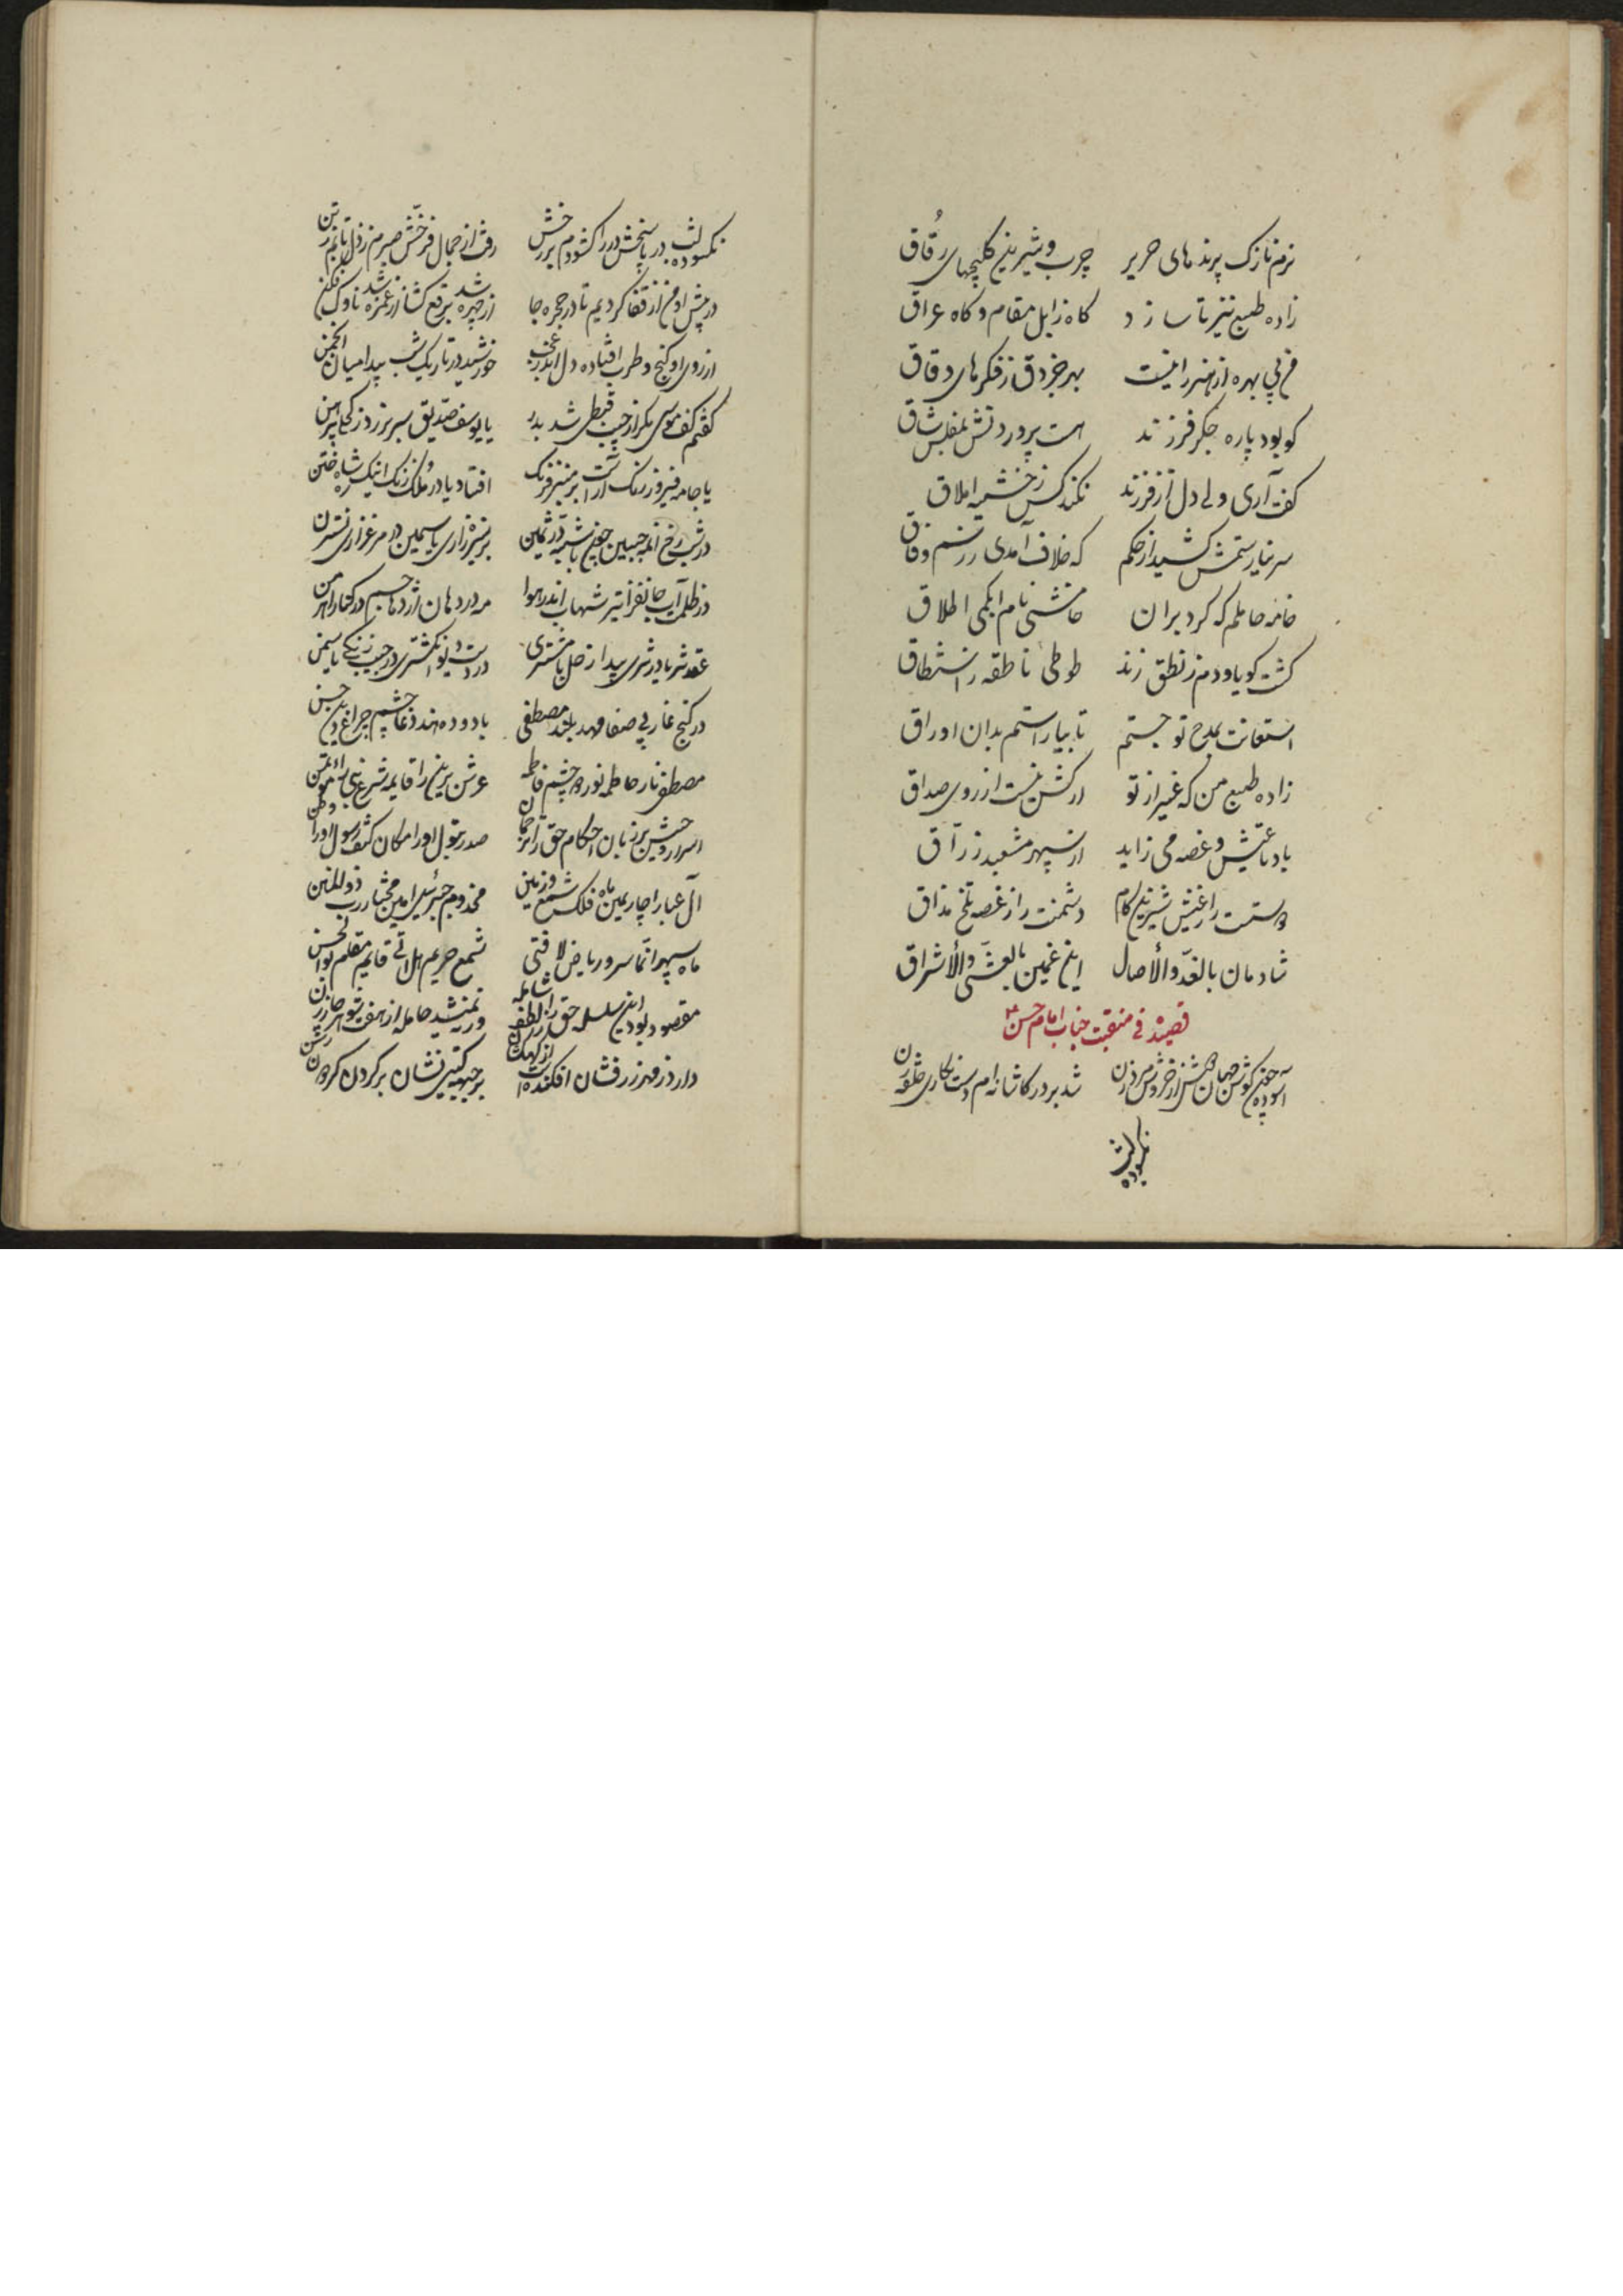 نرم نازک پرندهای حریر چرب و شیرین کلیچهای رُقاق
زاده طبع نیز تا سازد کاه زابل مقام و کاه عراق
من بی بهره از هنر را نیست بهر جز دق ز فکرهای دقاق
کو بود پاره جکر فرزند است پروردنش بمفلس شاق
کفت آری ولی دل از فرزند نکند کس ز خشیه املاق
سر نیارستمش کشید از حکم که خلاف آمدی ز رسم وفاق
خامه حاملم که کرد بران خامشی نام ابکمی اطلاق
کشت کویا و دم ز نطق زند طوطی ناطقه ز استنطاق
استعانت بمدح تو جستم تا بیاراستم بدان اوراق
زاده طبع من که غیر از تو ارکسش نیست از روی صداق
باد تا عیش و غصه می زاید از سپهر مشعبد زرّاق
دوستت را ز عیش شیرین کام دشمنت را ز غصه تلخ مذاق
شادمان بالغدّو والأصال این غمین بالعشّی والأشراق
قصیده فی منقبت جناب امام حسن ع
آسوده چون کوش جهان از خروش مرد و زن شد بر در کاشانه ام دست نکاری حلقه زن
نکسوده لب
نکسوده لب در پاسخش در را کشودم بر رخش رفت از جمال فرّخش صبرم ز دل تابم ز تن
در پیش او من از قفا کردیم تا در حجره جا از چهره شد برقع کشا از غمزه شد ناوک فکن
از روی او کنج و طرب افتاده دل اندر عجب خورشید در تاریک شب پیدا میان انجمن
کفتم کف موسی مکر از جیب قبطی شد بدر یا یوسف صدّیق سر بر زد ز کحلی پیرهن
یا جامه فیروز رنک آراست بر منبر فرنک افتاد یا در مُلک زنک اینک ره شاه ختن
بر سبزه زاری یاسمین در مرغزاری نسترن
در ظلمت آب جانفزا تیر شهاب اندر هوا مه در دهان اژدها جم در کنار اهرمن
عقد ثریا در ثری پیدا زحل با مشتری در دست دیو انکشتری در جیب زنکی یاسمن
در کنج غار بی صفا مهد بلند مصطفی با دوده هند دغا چشم و چراغ دین حسن
مصطفی نار حاطمه نور دو چشم فاطمه عرش برین را قایمه شرع نبی را مؤتمن
اسرار وحیش بر زبان احکام حق را ترجمان صدر بتول او را مکان کتف رسول او را وطن
آل عبا را چارمین ماه فلک شمع زمین مخدوم جبرئیل امین مختار رب ذوالمنن
ماه سپهر انّما سرو ریاض لافتی شمع حریم هل اتی قایم مقام بوالحسن
دارد ز مهر زرفشان افکنده است از کهکشان بر جبهه کیتی نشان بر کردن کردون رسن